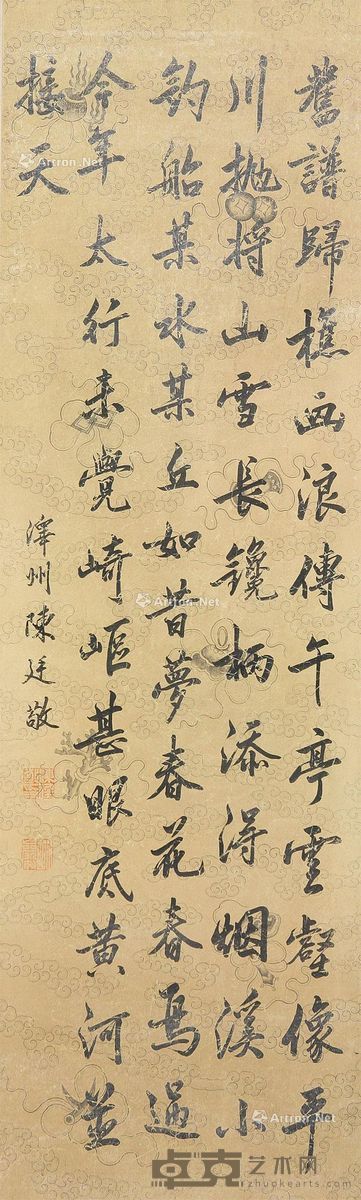 舊譜歸樵画浪傳午亭雲壑像平
川拋將山雪長鑱柄添得烟溪小
釣船某水某丘如昔夢春花春鳥過
今年太行未覺崎嶇甚眼底黃河並
接天
澤州陳廷敬
Artron.Net
Artron.Net
Artron.Net
Artron.Net
Artron.Net
Artron.Net
卓克艺术网
zhuokearts.com